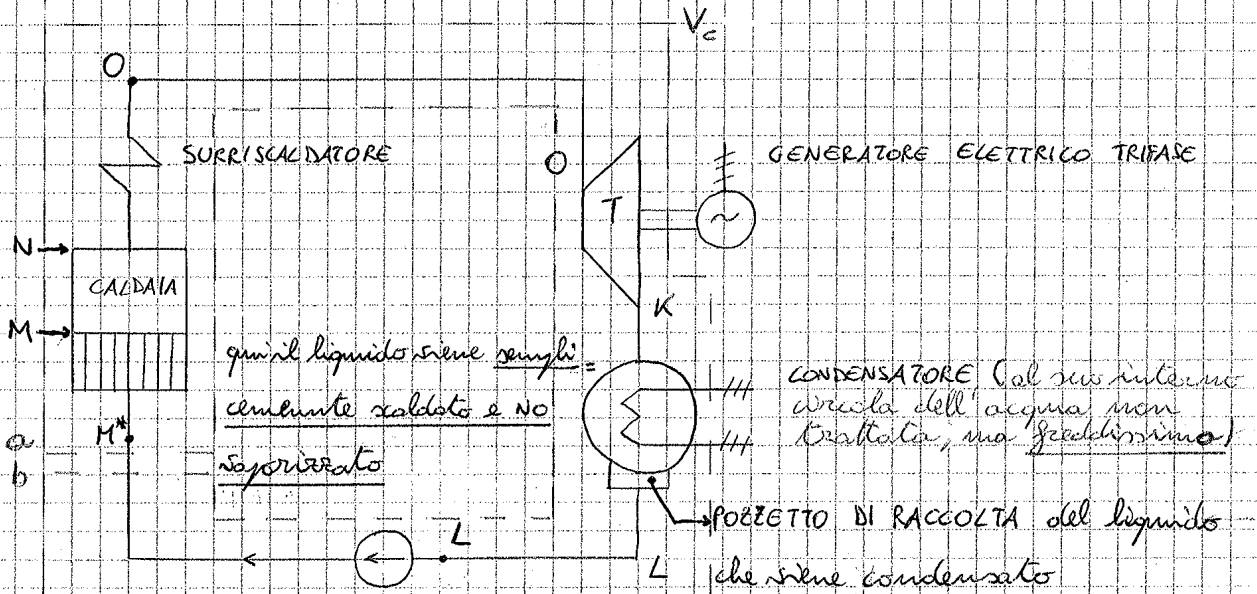 V_c
O
SURRISCALDATORE
O
GENERATORE ELETTRICO TRIFASE
T
~
N
CALDAIA
K
M
qui il liquido viene sempli=
cemente scaldato e NO
vaporizzato
CONDENSATORE (al suo interno
circola dell'acqua non
trattata, ma freddissima)
a
M*
b
POZZETTO DI RACCOLTA del liquido
che viene condensato
L
L